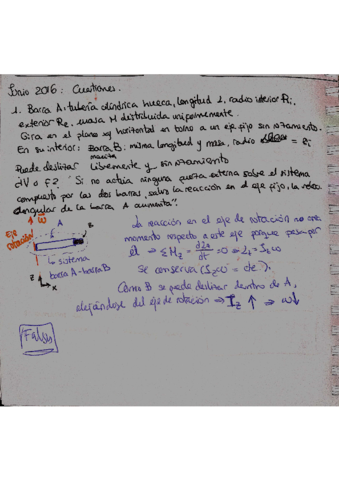 Junio 2016: Cuestiones.
1. Barra A: tubería cilíndrica hueca, longitud L, radio interior Ri,
exterior Re, masa M distribuida uniformemente
Gira en el plano xy horizontal en torno a un eje fijo sin rozamiento.
En su interior: Barra B: misma longitud y masa, radio = Ri
maciza
Puede deslizar libremente y sin rozamiento
¿V o F? "Si no actúa ninguna fuerza externa sobre el sistema
compuesto por las dos barras, salvo la reacción en el eje fijo, la veloc.
angular de la barra A aumenta".
EJE
ROTACIÓN
ω
A
B
sistema
barra A-barra B
z
x
La reacción en el eje de rotación no crea
momento respecto a este eje porque pasa por
él ⇒ ΣMz = dLz/dt = 0 ⇒ Lz = Izω
se conserva (Izω = cte).
Como B se puede deslizar dentro de A,
alejándose del eje de rotación ⇒ Iz ↑ ⇒ ω↓
Falso